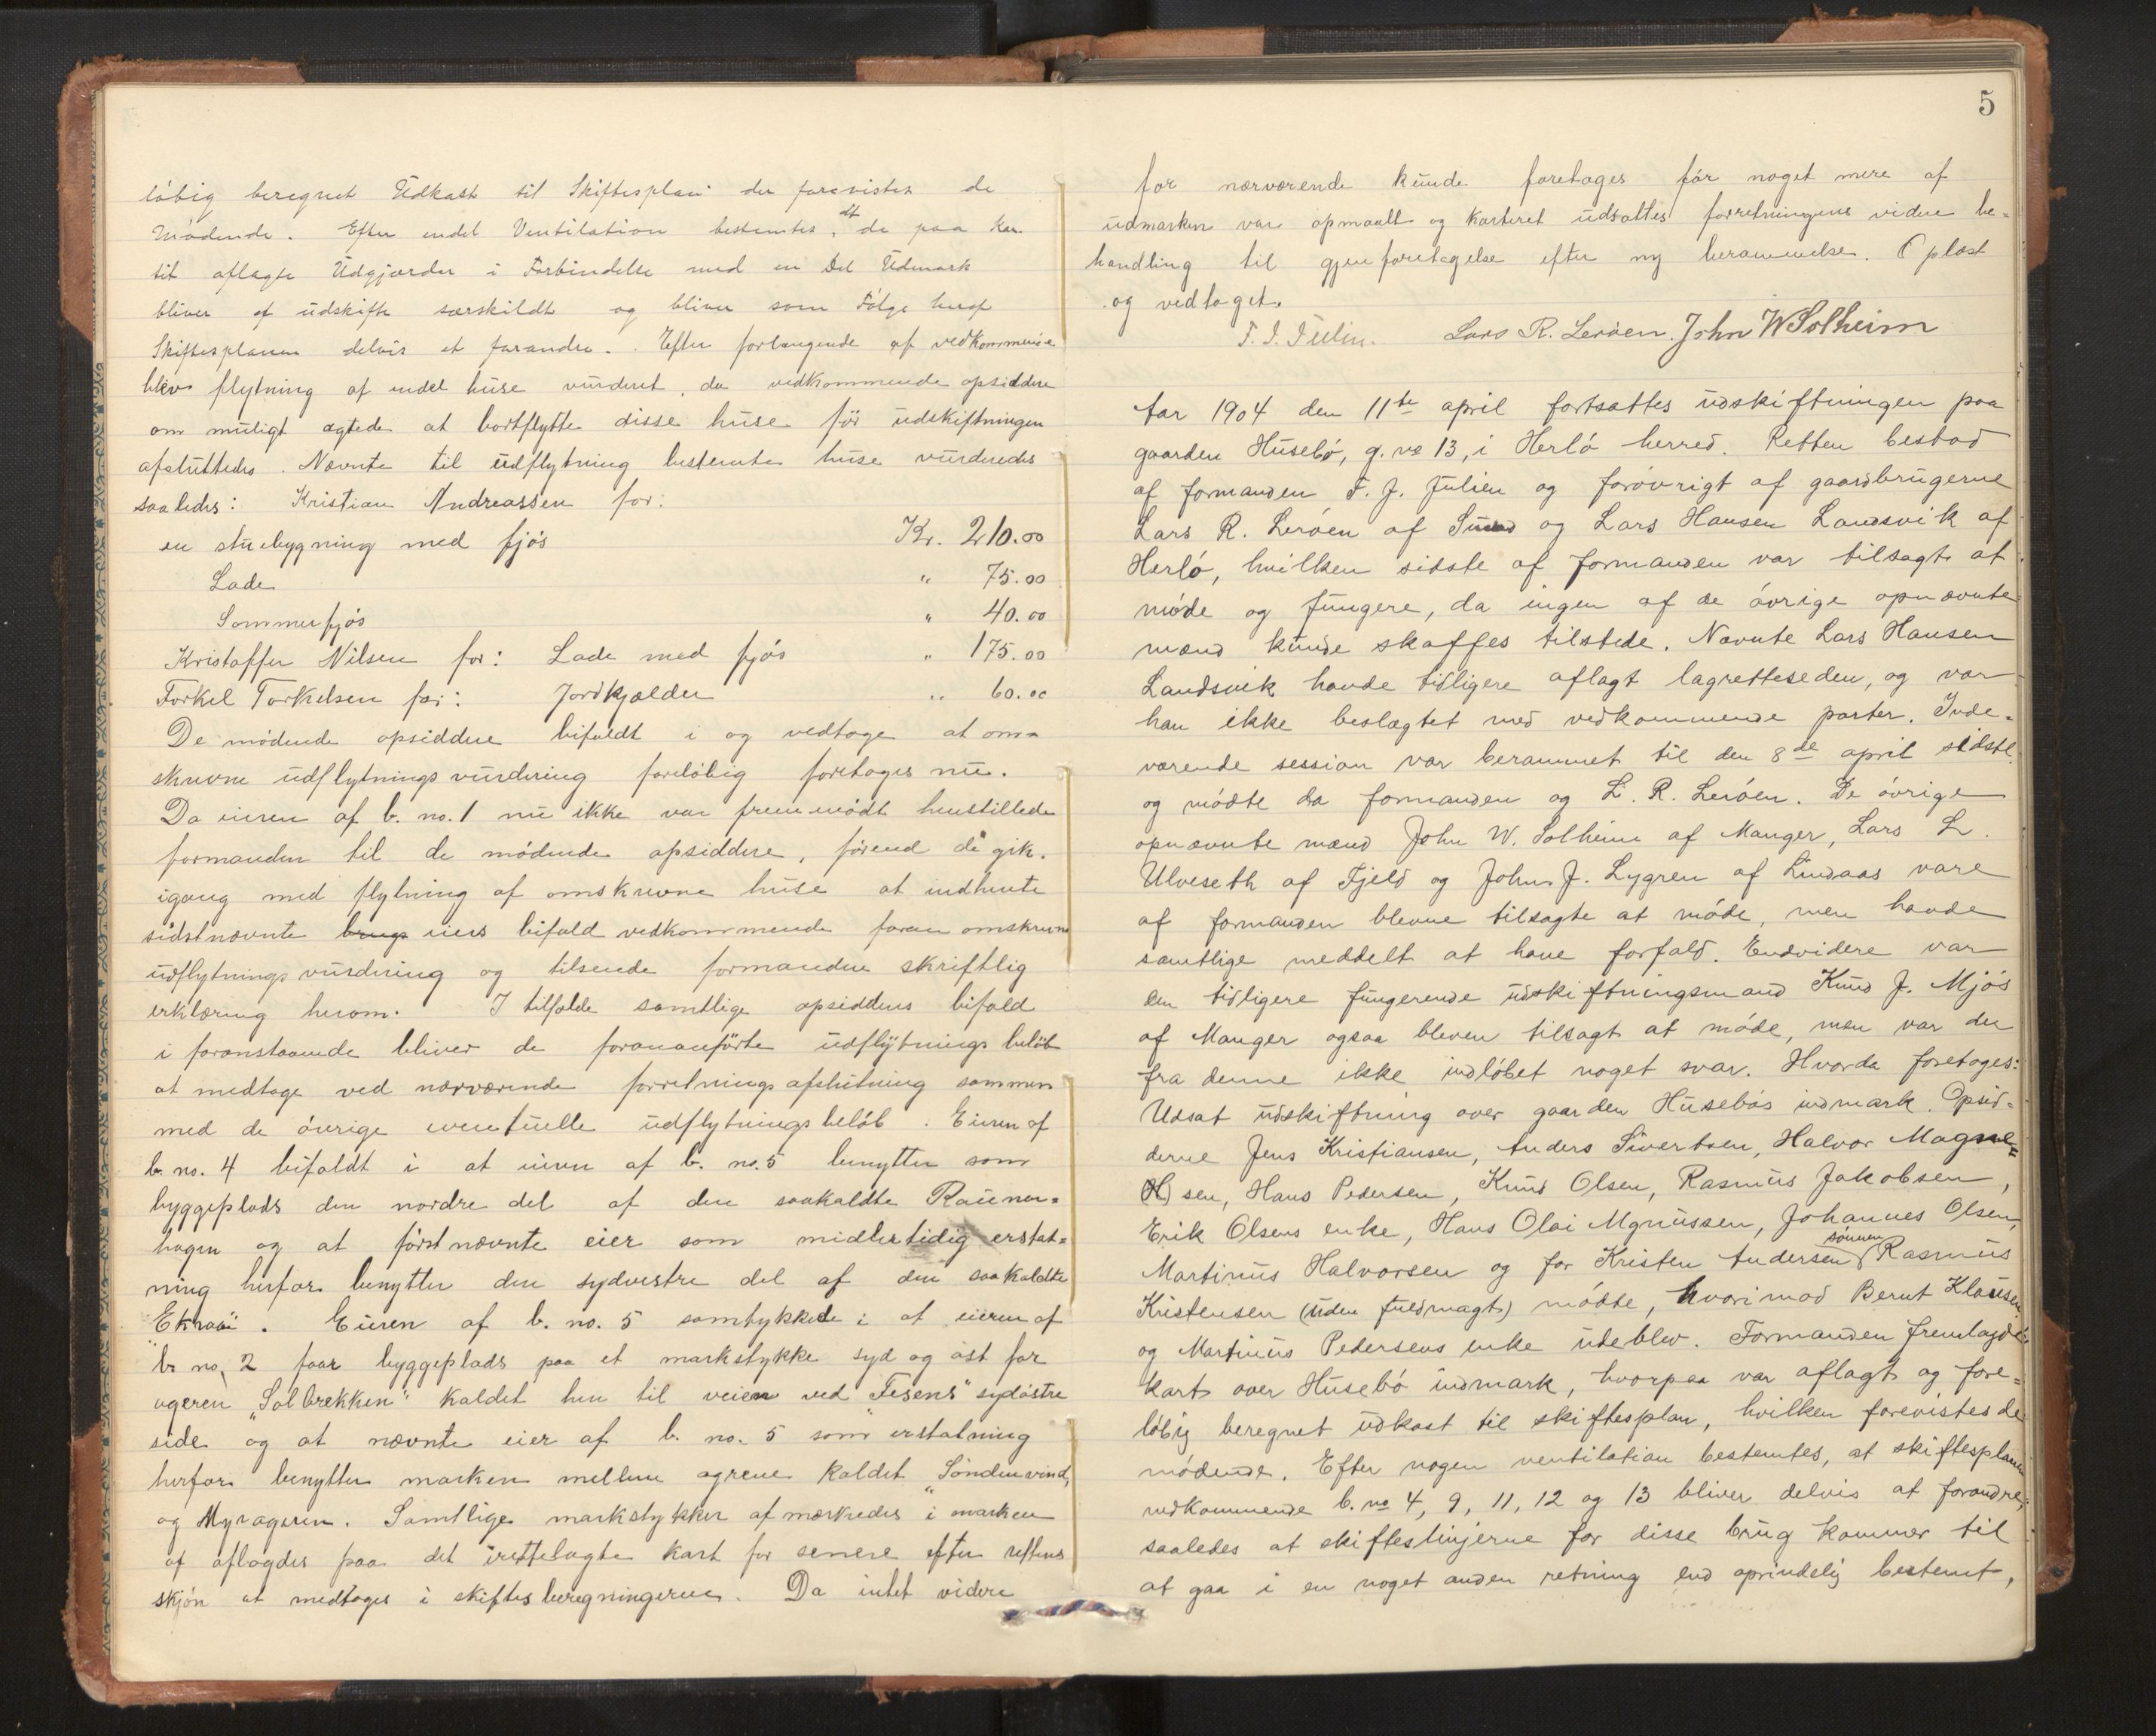 löbig beregnet Udkast til Skiftesplan der forevistes de
mödende. Efter endel Ventilation bestemtes, at de paa kar
tet aflagte Udgjærder i Forbindelse med en Del Udmark
bliver at udskifte særskildt og bliver som Fölge heraf
Skiftesplanen delvis at forandre. Efter forlangende af vedkommende
blev flytning af endel huse vurderet, da vedkommende opsiddere
om muligt agtede at bortflytte disse huse för udskiftningen
afsluttedes. Nævnte til udflytning bestemte huse vurderedes
saaledes: Kristian Andreassen for:
en stuebygning med fjös Kr. 210.00
Lade " 75.00
Sommerfjös " 40.00
Kristoffer Nilsen for: Lade med fjös " 175.00
Torkel Torkelsen for: Jordkjælder " 60.00
De mödende opsiddere bifaldt i og vedtoge at om=
skrevne udflytningsvurdering forelöbig foretoges nu.
Da eieren af b. no. 1 nu ikke var fremmödt henstillede
formanden til de mödende opsiddere, förend de gik
igang med flytning af omskrevne huse at indhente
sidstnævnte eiers bifald vedkommende foran omskrevne
udflytningsvurdering og tilsende formanden skriftlig
erklæring herom. I tilfælde samtlige opsidderes bifald
i foranstaaende bliver de forananförte udflytningsbelöb
at medtage ved nærværende forretnings afslutning sammen
med de övrige eventuelle udflytningsbelöb. Eieren af
b. no. 4 bifaldt i at eieren af b. no. 5 benytter som
byggeplads den nordre del af den saakaldte Raunen=
hagen og at förstnævnte eier som midlertidig erstat=
ning herfor benytter den sydvestre del af den saakaldte
"Ekraa". Eieren af b. no. 5 samtykkede i at eieren af
b. no. 2 faar byggeplads paa et markstykke syd og öst for
ageren "Solbrekken" kaldet hen til veien ved "Tesens" sydöstre
side og at nævnte eier af b. no. 5 som erstatning
herfor benytter marken mellem agrene kaldet "Söndenvind"
og Myrageren. Samtlige markstykker afmærkedes i marken
og aflagdes paa det irettelagte kart for senere efter rettens
skjön at medtages i skiftesberegningerne. Da intet videre
5
for nærværende kunde foretages för noget mere af
udmarken var opmaalt og karteret udsattes forretningens videre be=
handling til gjenforetagelse efter ny berammelse. Oplæst
og vedtaget.
T. J. Julin. Lars R. Leröen. John W Solheim
Aar 1904 den 11te april fortsattes udskiftningen paa
gaarden Husebö, g. no 13, i Herlö herred. Retten bestod
af formanden T. J. Julien og forövrigt af gaardbrugerne
Lars R. Leröen af Sund og Lars Hansen Landsvik af
Herlö, hvilken sidste af formanden var tilsagt at
möde og fungere, da ingen af de övrige opnævnte
mænd kunde skaffes tilstede. Nævnte Lars Hansen
Landsvik havde tidligere aflagt lagretteseden, og var
han ikke beslægtet med vedkommende parter. Inde=
værende session var berammet til den 8de april sidstl.
og mödte da formanden og L. R. Leröen. De övrige
opnævnte mænd John W. Solheim af Manger, Lars L.
Ulveseth af Fjeld og Johns J. Lygren af Lindaas vare
af formanden blevne tilsagte at möde, men havde
samtlige meddelt at have forfald. Endvidere var
den tidligere fungerende udskiftningsmand Knud J. Mjös
af Manger ogsaa bleven tilsagt at möde, men var der
fra denne ikke indlöbet noget svar. Hvorda foretoges:
Udsat udskiftning over gaarden Husebös indmark. Opsid=
derne Jens Kristiansen, Anders Sivertsen, Halvor Magne=
sen, Hans Pedersen, Knud Olsen, Rasmus Jakobsen,
Erik Olsens enke, Hans Olai Mgnussen, Johannes Olsen,
Martinus Halvorsen og for Kristen Andersen sönnen Rasmus
Kristensen (uden fuldmagt) mödte, hvorimod Bernt Klausen
og Martinus Pedersens enke udeblev. Formanden fremlagde
kart over Husebö indmark, hvorpaa var aflagt og fore=
löbig beregnet udkast til skiftesplan, hvilken forevistes de
mödende. Efter nogen ventilation bestemtes, at skiftesplanen
vedkommende b. no 4, 9, 11, 12 og 13 bliver delvis at forandre,
saaledes at skifteslinjerne for disse brug kommer til
at gaa i en noget anden retning end oprindelig bestemt,